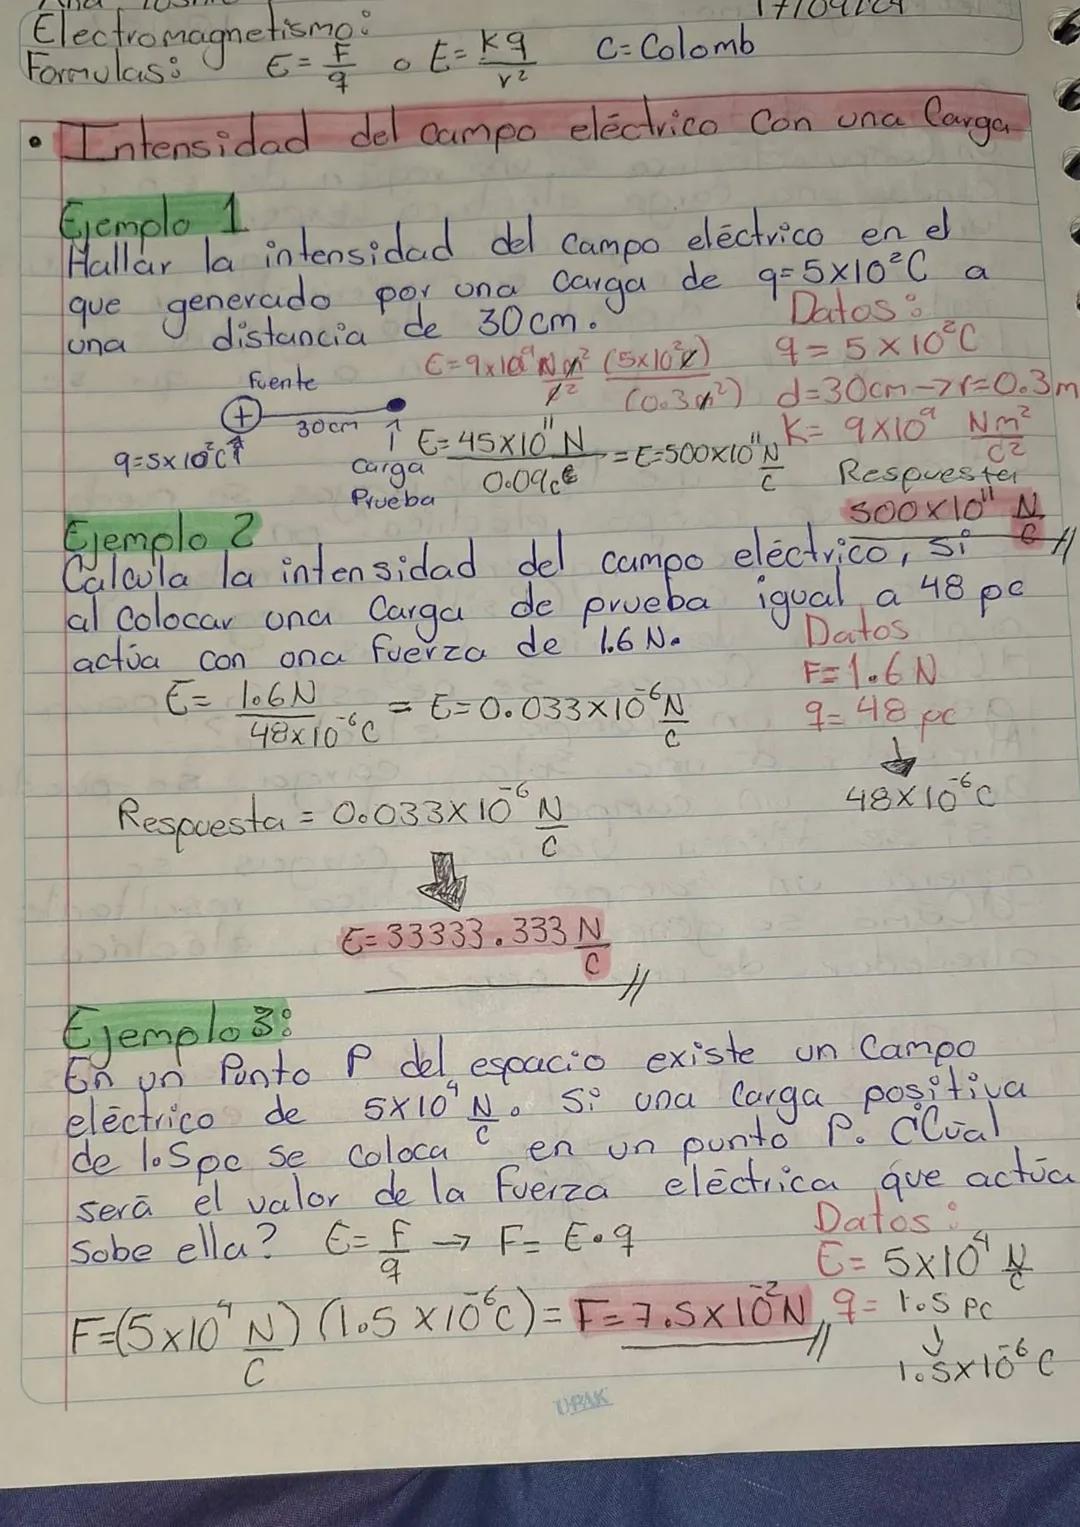 Electromagnetismo:
Formulas: E= F/q o E= kq/r² C= Colomb
• Intensidad del campo eléctrico con una Carga
Ejemplo 1
Hallar la intensidad del campo eléctrico en el
que generado por una carga de q=5x10²C a
una distancia de 30cm.
Datos:
q= 5x10²C
d=30cm→r=0.3m
K= 9x10⁹ Nm²/C²
Fuente
30cm
q=5x10²C
Carga
Prueba
E=9x10⁹ Nm²/C² (5x10²C)/(0.3m²)
E= 45x10¹¹ N/0.09c = E=500x10¹¹ N/C
Respuesta
500x10¹¹ N/C
Ejemplo 2
Calcula la intensidad del campo eléctrico, si
al colocar una carga de prueba igual a 48 pc
actúa con una fuerza de 1.6 N.
Datos
F=1.6 N
q= 48 pc
↓
48x10⁻⁶C
E= 1.6N/48x10⁻⁶C = E=0.033x10⁻⁶ N/C
Respuesta = 0.033x10⁻⁶ N/C
E=33333.333 N/C
Ejemplo 3:
En un Punto P del espacio existe un Campo
eléctrico de 5x10⁴ N/C. Si una carga positiva
de 1.5pc se coloca en un punto P. ¿Cuál
será el valor de la fuerza eléctrica que actúa
Sobe ella? E= F/q → F= E•q
Datos:
E= 5x10⁴ N/C
q= 1.5 pc
↓
1.5x10⁻⁶ C
F=(5x10⁴ N/C) (1.5 x10⁻⁶c)= F=7.5x10⁻²N
UPAK